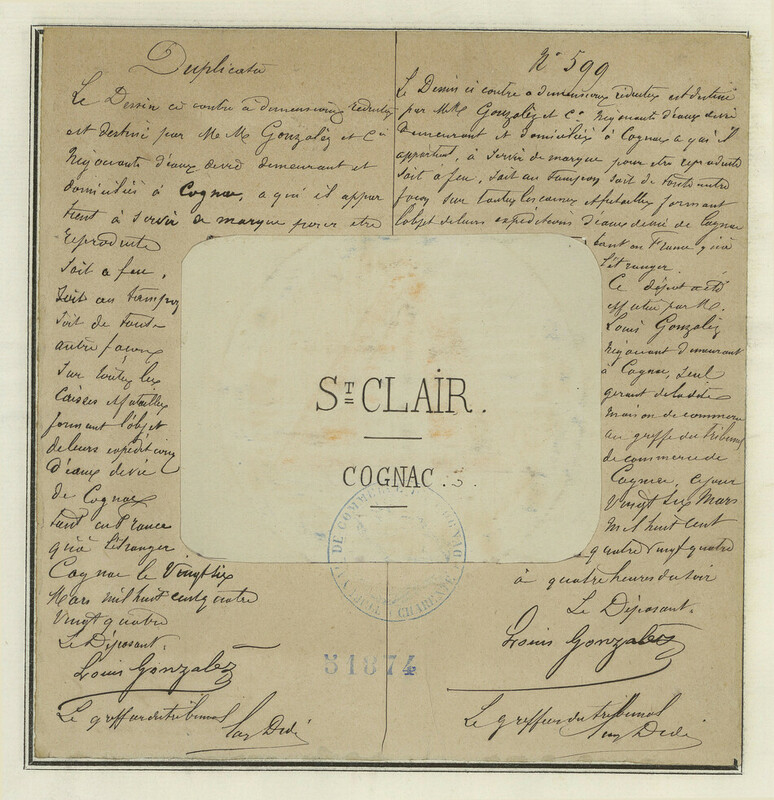 Duplicata
Le Dessin ci contre a dimensions reduites
est destiné par M M Gonzalèz et Cie
Négociants d'eaux devie demeurant et
domiciliés à Cognac, a qui il appar
tient à servir de marque pour etre
reproduite
soit a feu,
soit au tampon
soit de toute
autre façon
sur toutes les
Caisses & futailles
formant l'objet
de leurs expéditions
d'eaux devie
de Cognac
tant en France
qu'à l'étranger
Cognac le Vingt six
Mars mil huit cent quatre
Vingt quatre
Le Déposant.
Louis Gonzalèz
Le greffier du tribunal
N° 599
Le Dessin ci contre a dimensions reduites est destiné
par M M Gonzalèz et Cie Négociants d'eaux devie
Demeurant et domiciliés à Cognac a qui il
appartient, à servir de marque pour etre reproduite
soit a feu, soit au tampon soit de toute autre
façon sur toutes les caisses & futailles formant
l'objet de leurs expéditions d'eaux devie de Cognac
tant en France qu'à
l'étranger.
Ce dépot a été
effectué par M.
Louis Gonzalèz
Négociant demeurant
à Cognac, seul
gerant de la dite
maison de commerce
au greffe du tribunal
de commerce de
Cognac, ce jour
Vingt six Mars
mil huit cent
quatre vingt quatre
à quatre heures du soir
Le Déposant.
Louis Gonzalèz
Le greffier du tribunal
ST CLAIR.
COGNAC
51874